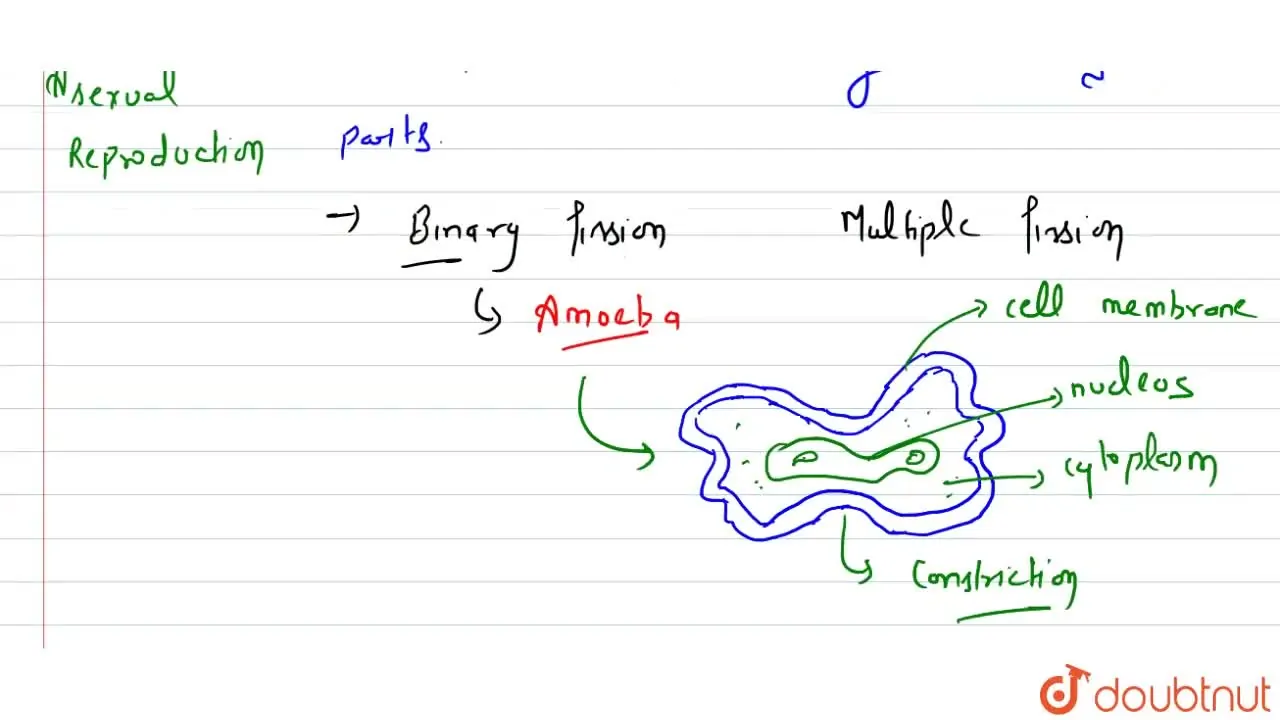 Asexual
Reproduction
parts.
→ Binary fission
Multiple fission
Amoeba
cell membrane
nucleus
cytoplasm
Constriction
doubtnut